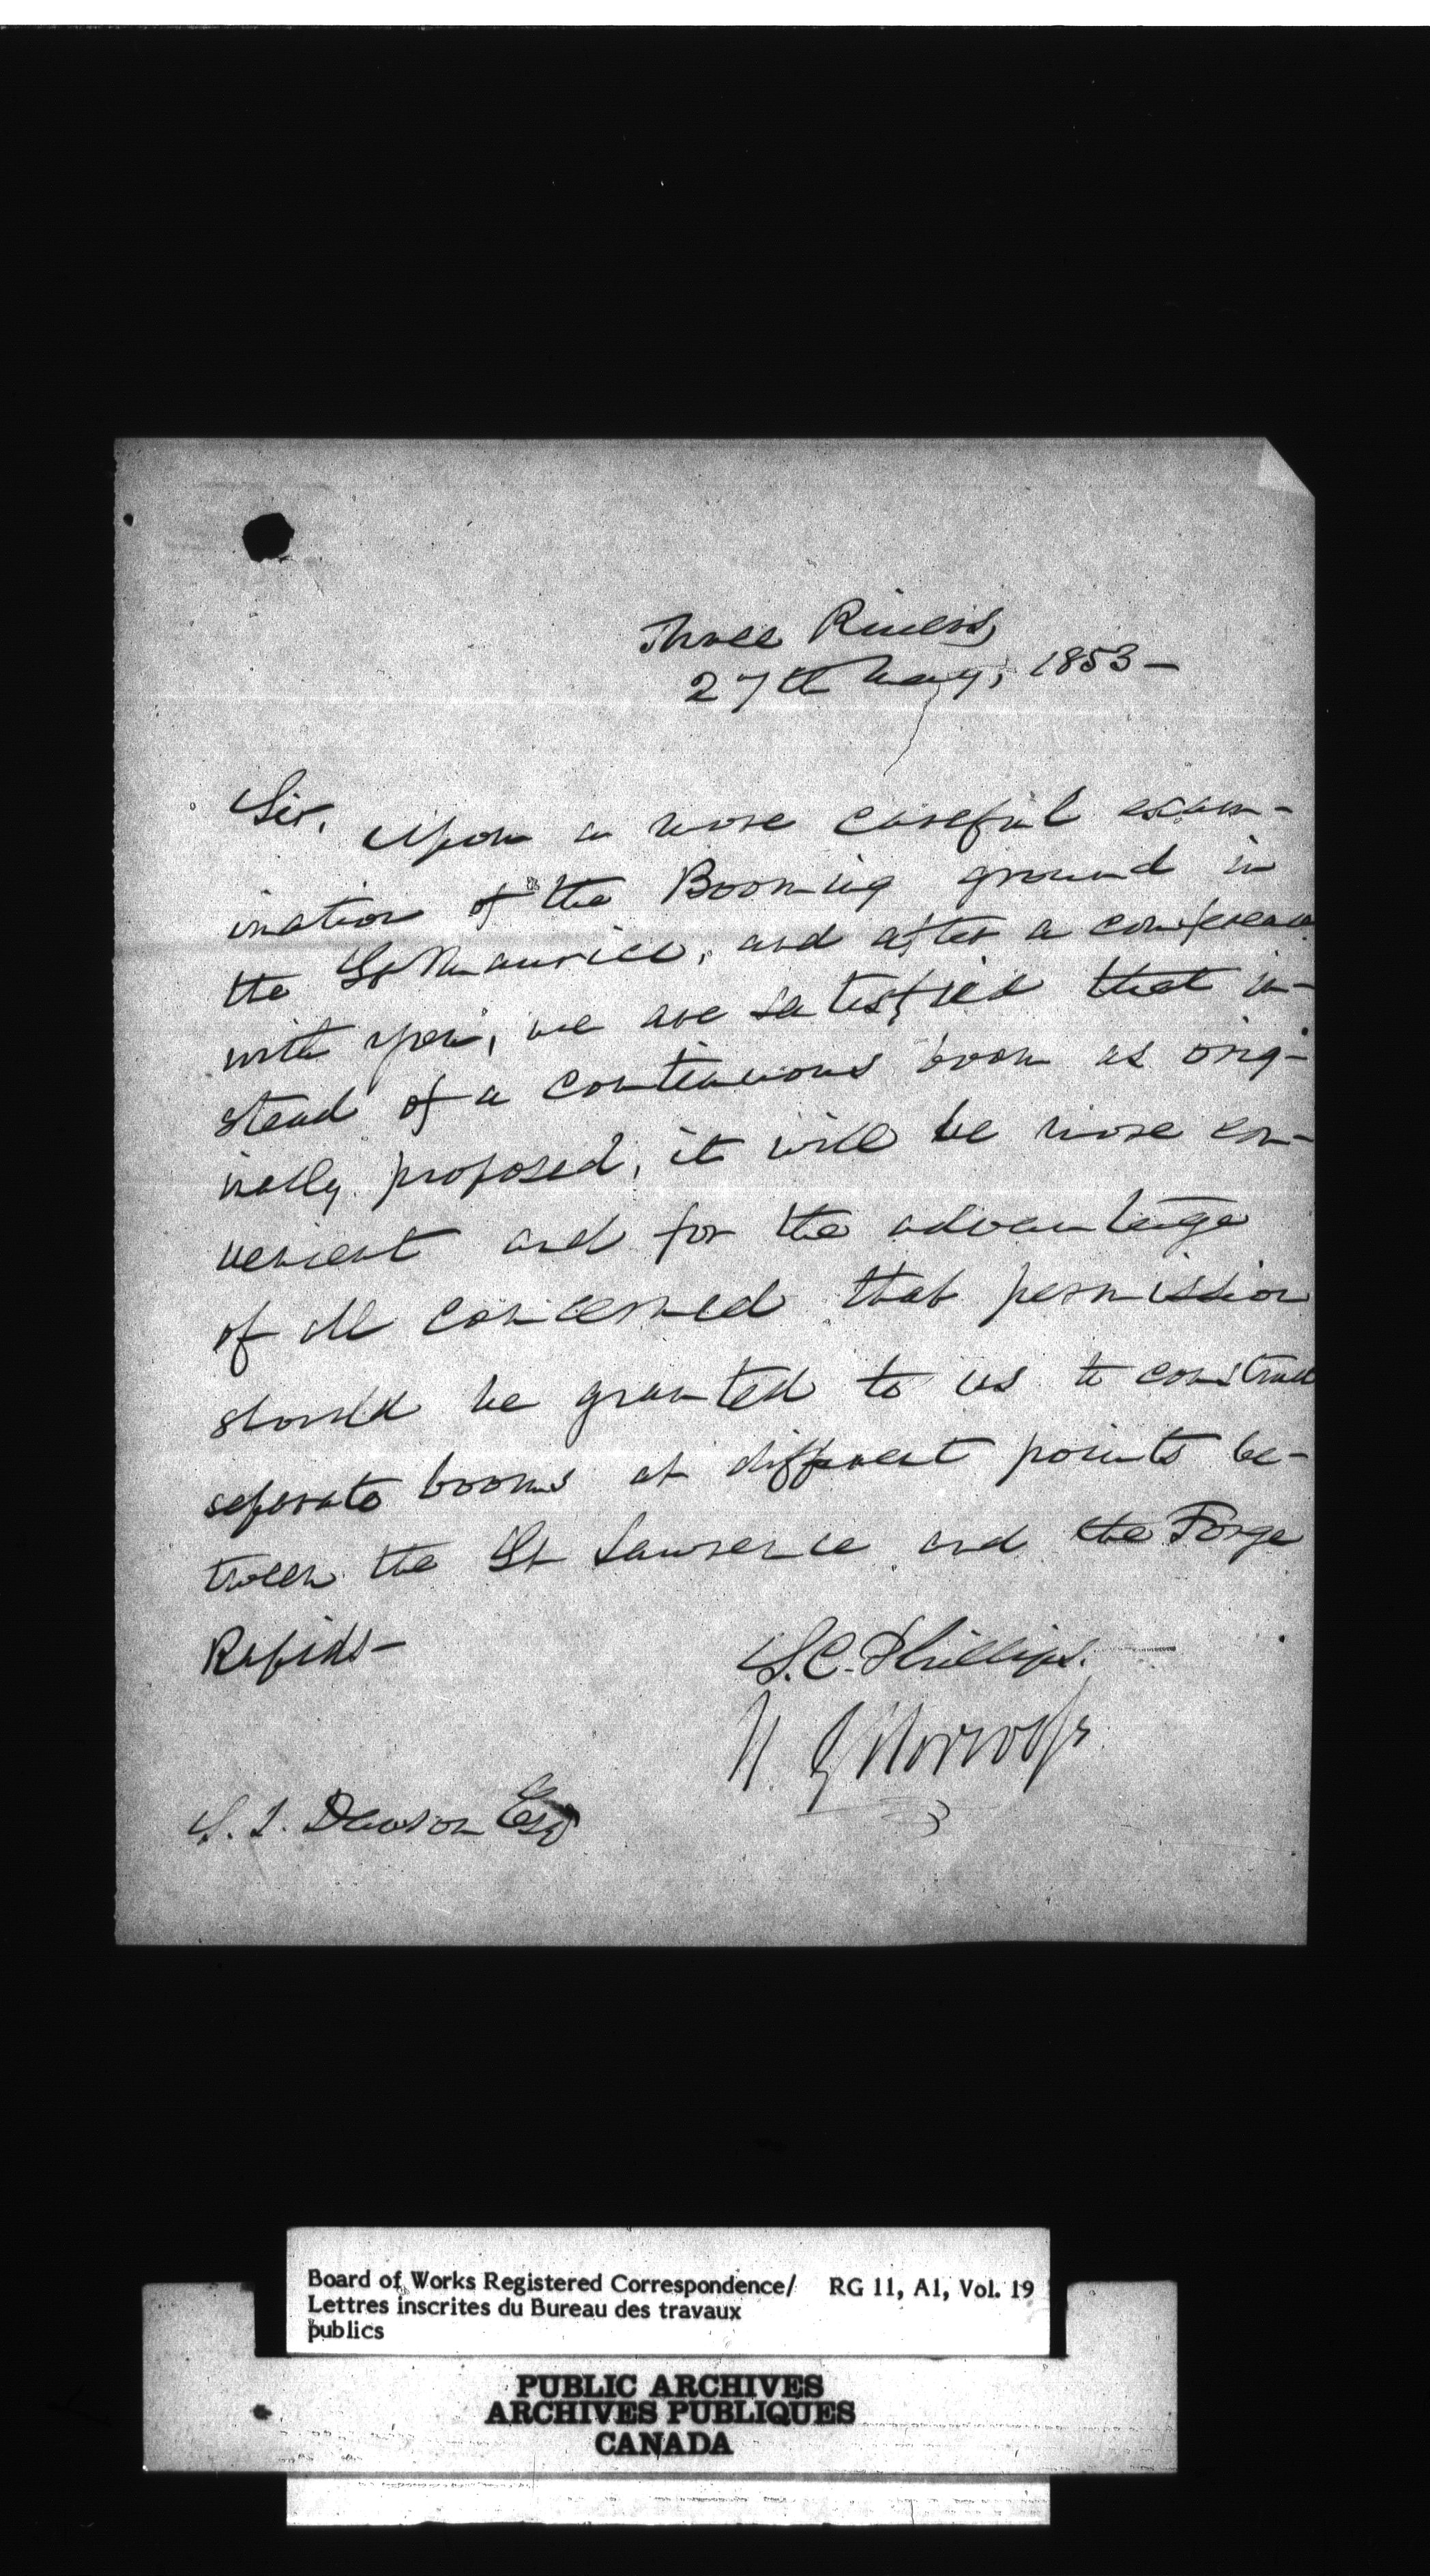 Three Rivers,
27th May, 1853 —
Sir, Upon a more careful exam-
ination of the Booming ground in
the St Maurice, and after a conference
with you, we are satisfied that in-
stead of a continuous boom as orig-
inally proposed, it will be more con-
venient and for the advantage
of all concerned that permission
should be granted to us to construct
separate booms at different points be-
tween the St Lawrence and the Forge
Rapids —
S. C. Phillips.
N. Norcross
S. J. Dawson Esq
Board of Works Registered Correspondence/ RG 11, A1, Vol. 19
Lettres inscrites du Bureau des travaux
publics
PUBLIC ARCHIVES
ARCHIVES PUBLIQUES
CANADA